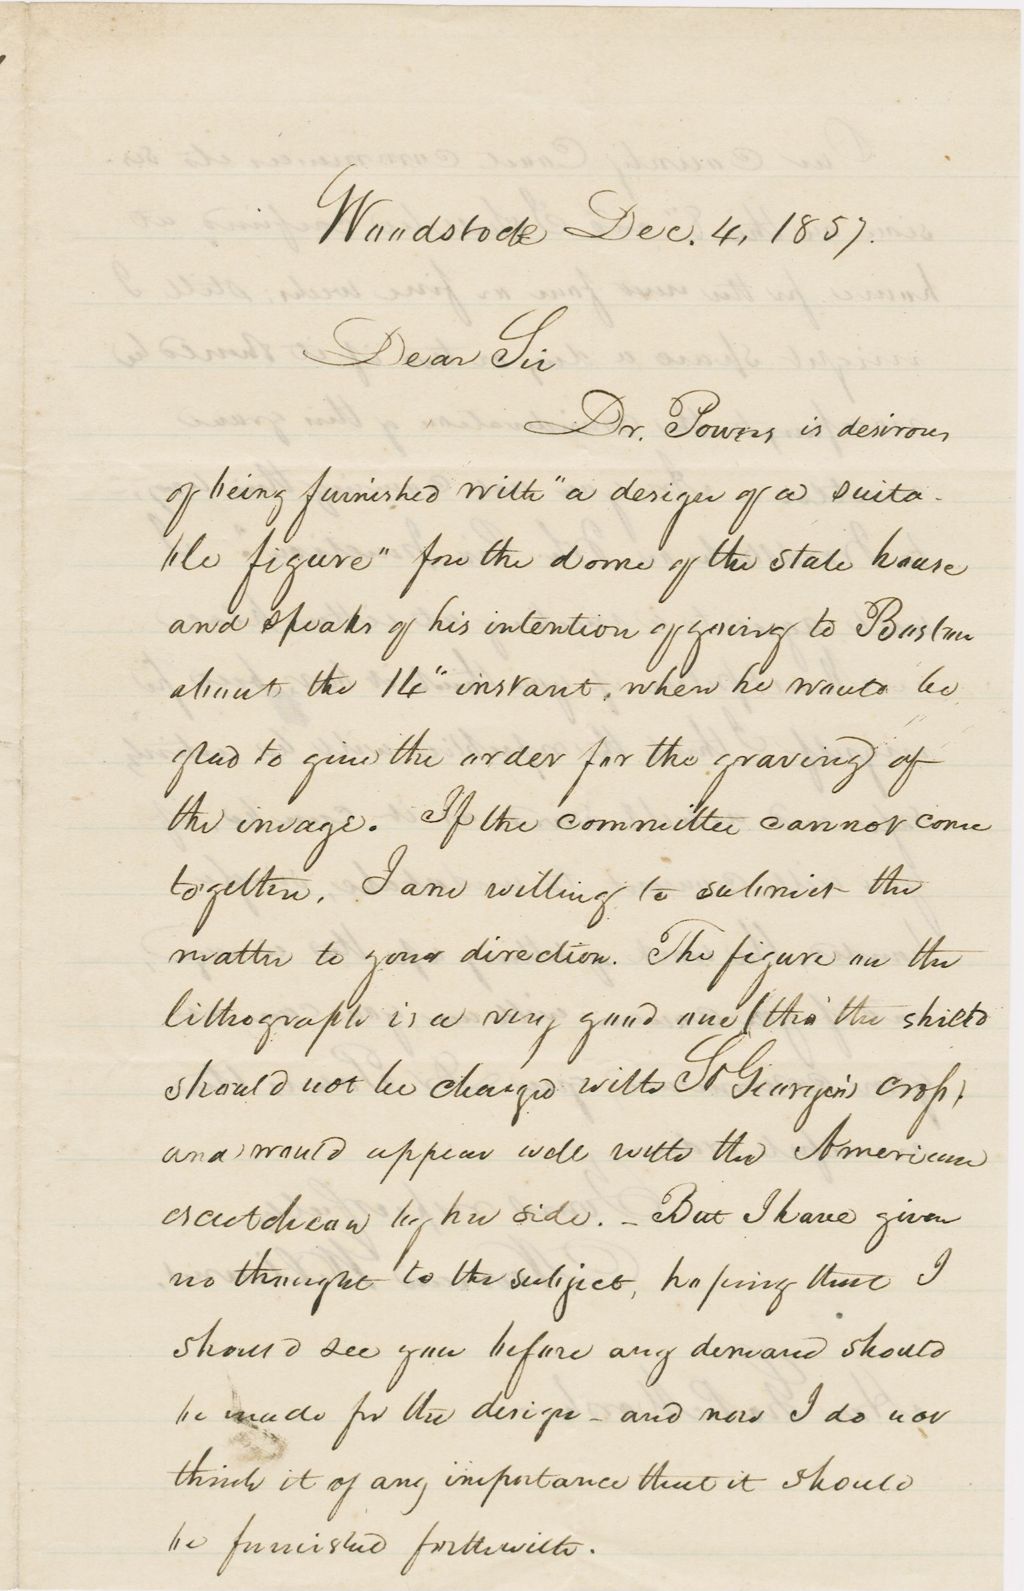 Woodstock Dec. 4, 1857.
Dear Sir
Dr. Powers is desirous
of being furnished with "a design of a suita-
ble figure" for the dome of the state house
and speaks of his intention of going to Boston
about the 14" instant, when he would be
glad to give the order for the graving of
the image. If the committee cannot come
together, I am willing to submit the
matter to your direction. The figure on the
lithograph is a very good one (tho' the shield
should not be charged with St George's cross)
and would appear well with the American
escutcheon by her side. - But I have given
no thought to the subject, hoping that I
should see you before any demand should
be made for the design - and now I do not
think it of any importance that it should
be furnished forthwith.